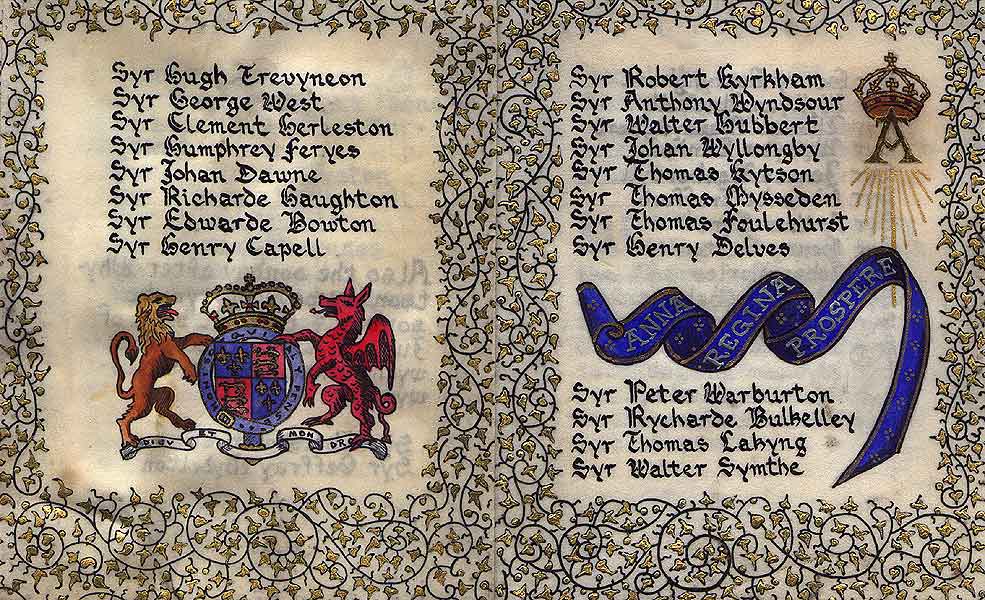 Syr Hugh Trevyneon
Syr George West
Syr Clement Herleston
Syr Humphrey Feryes
Syr Johan Dawne
Syr Richarde Haughton
Syr Edwarde Bowton
Syr Henry Capell
DIEU ET MON DRO
Syr Robert Kyrkham
Syr Anthony Wyndsour
Syr Walter Hubbert
Syr Johan Wyllongby
Syr Thomas Kytson
Syr Thomas Mysseden
Syr Thomas Foulehurst
Syr Henry Delves
A
ANNA REGINA PROSPERE
Syr Peter Warburton
Syr Rycharde Bulkelley
Syr Thomas Lakyng
Syr Walter Symthe